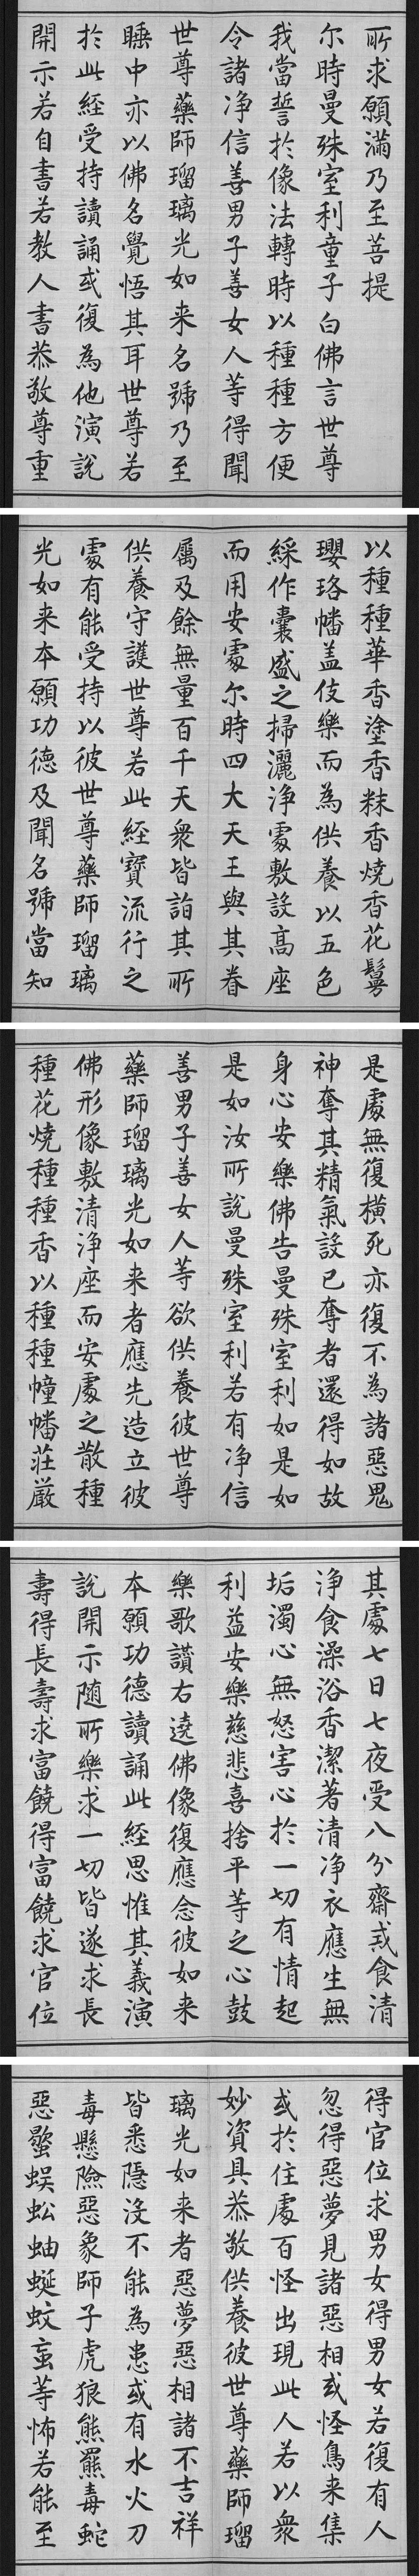 所求願滿乃至菩提
尔時曼殊室利童子白佛言世尊
我當誓於像法轉時以種種方便
令諸净信善男子善女人等得聞
世尊藥師瑠璃光如来名號乃至
睡中亦以佛名覺悟其耳世尊若
於此経受持讀誦或復為他演說
開示若自書若教人書恭敬尊重
以種種華香塗香粖香燒香花鬘
瓔珞幡盖伎樂而為供養以五色
綵作囊盛之掃灑净處敷設高座
而用安處尔時四大天王與其眷
屬及餘無量百千天衆皆詣其所
供養守護世尊若此経寶流行之
處有能受持以彼世尊藥師瑠璃
光如来本願功德及聞名號當知
是處無復橫死亦復不為諸惡鬼
神奪其精氣設已奪者還得如故
身心安樂佛告曼殊室利如是如
是如汝所說曼殊室利若有净信
善男子善女人等欲供養彼世尊
藥師瑠璃光如来者應先造立彼
佛形像敷清净座而安處之散種
種花燒種種香以種種幢幡莊嚴
其處七日七夜受八分齋或食清
净食澡浴香潔著清净衣應生無
垢濁心無怒害心於一切有情起
利益安樂慈悲喜捨平等之心鼓
樂歌讚右遶佛像復應念彼如来
本願功德讀誦此経思惟其義演
說開示随所樂求一切皆遂求長
壽得長壽求富饒得富饒求官位
得官位求男女得男女若復有人
忽得惡夢見諸惡相或怪鳥来集
或於住處百怪出現此人若以衆
妙資具恭敬供養彼世尊藥師瑠
璃光如来者惡夢惡相諸不吉祥
皆悉隱没不能為患或有水火刀
毒懸險惡象師子虎狼熊羆毒蛇
惡蠍蜈蚣蚰蜒蚊䖟等怖若能至